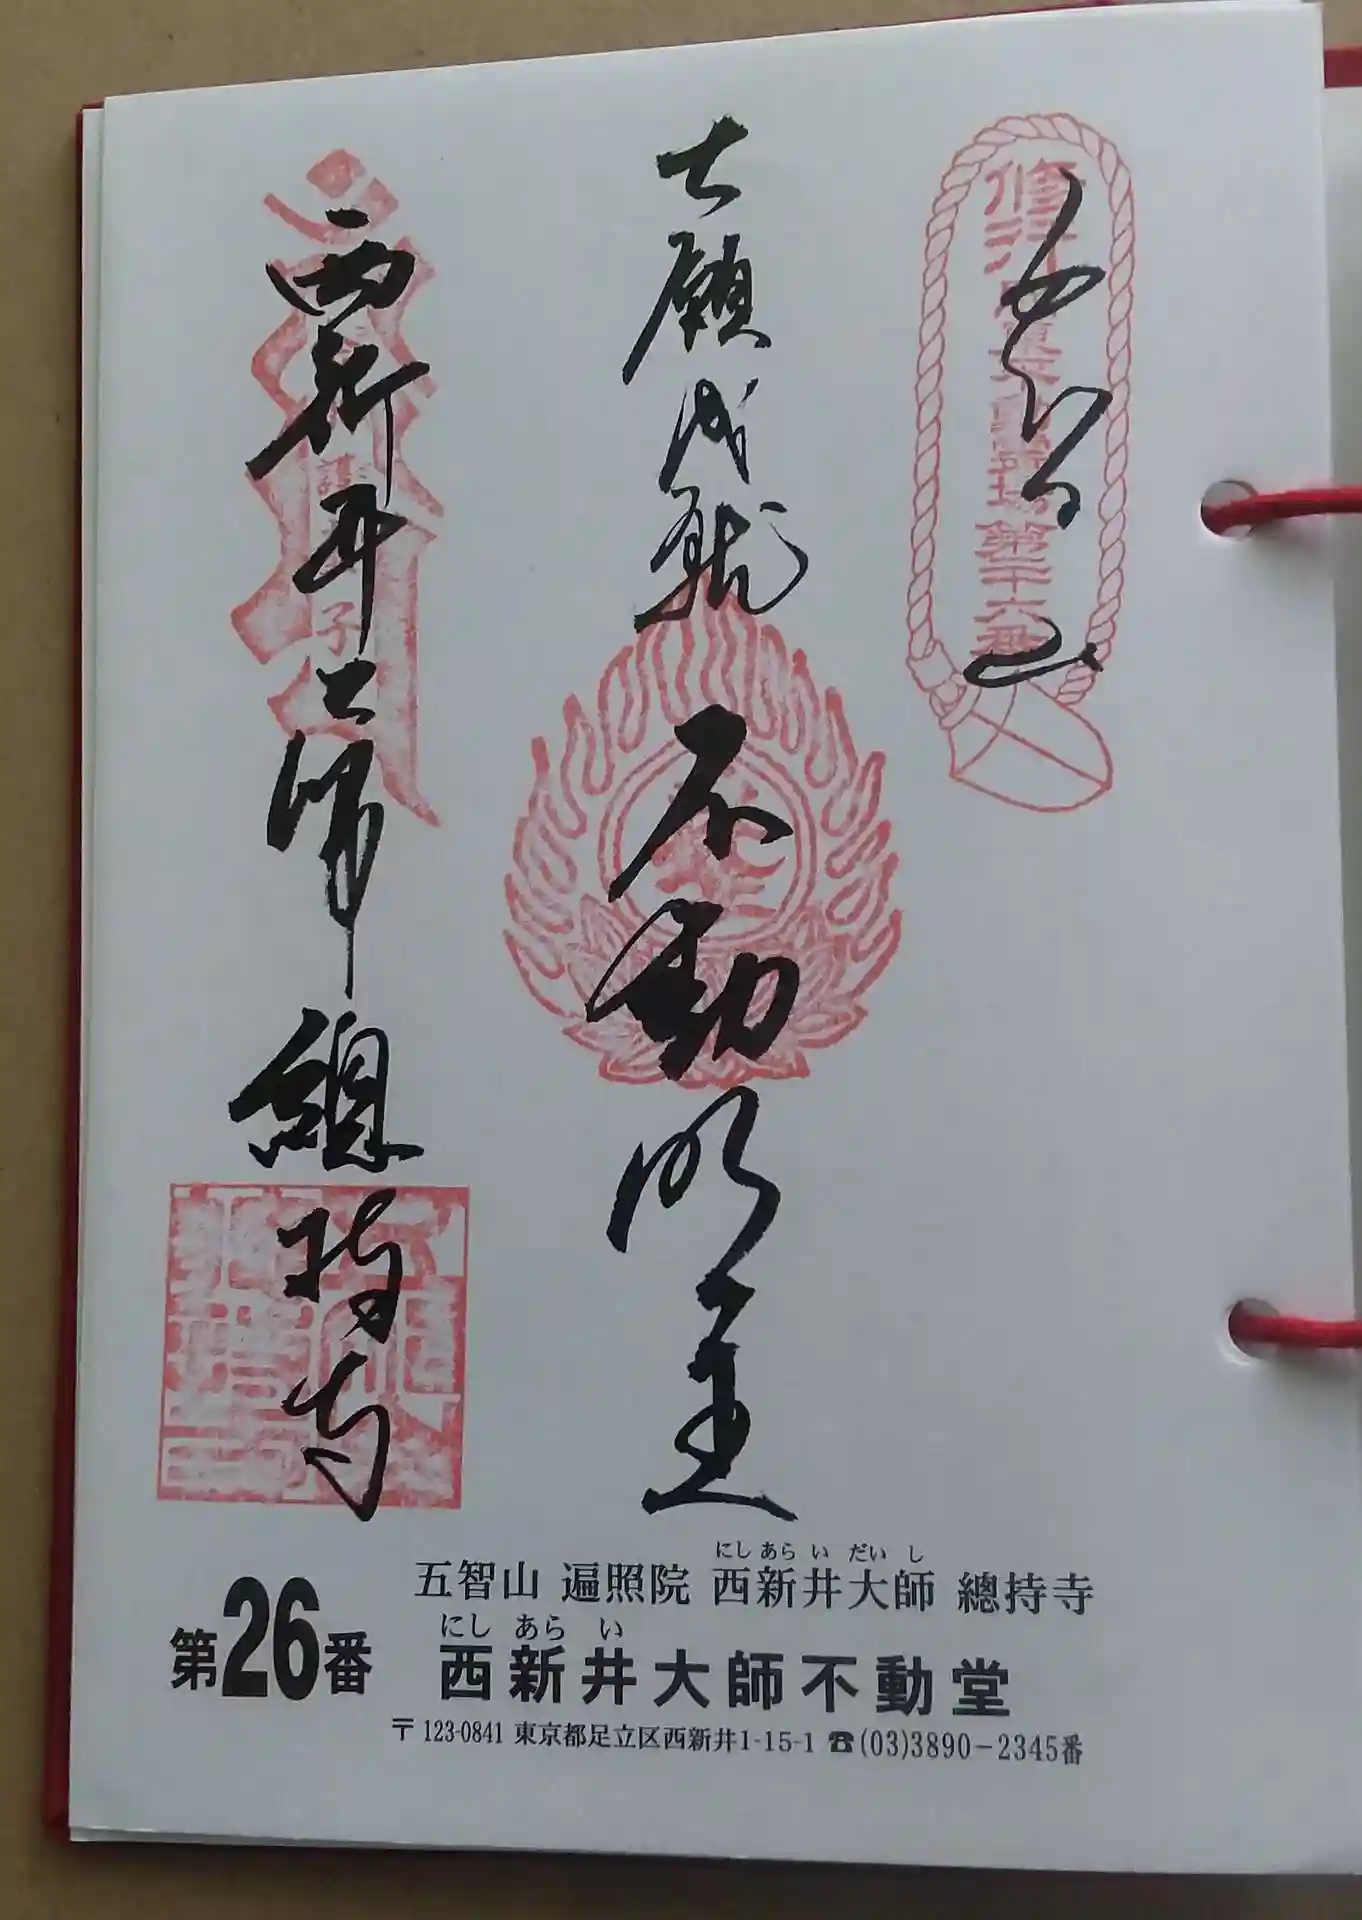 五智山
大願成就 不動明王
西新井大師 總持寺
にし あら い だい し
五智山 遍照院 西新井大師 總持寺
第26番
にし あら い
西新井大師不動堂
〒123-0841 東京都足立区西新井1-15-1 ☎(03)3890-2345番